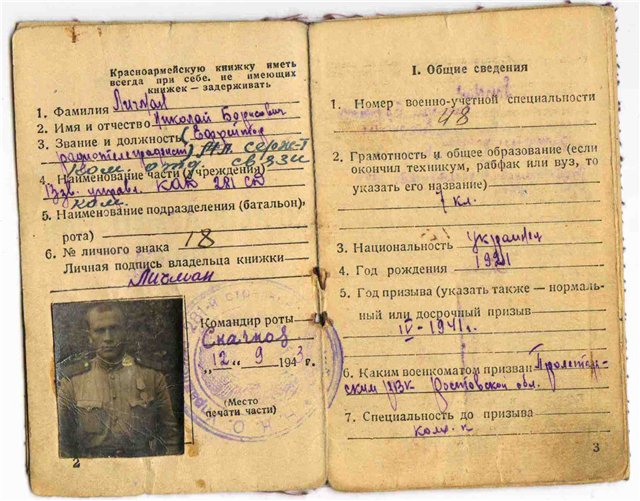 Красноармейскую книжку иметь
всегда при себе. не имеющих
книжек — задерживать
1. Фамилия Личман
2. Имя и отчество Николай Борисович
3. Звание и должность (
радиотелеграфист) мл. серж-т
Ком. отд. связи
4. Наименование части (учреждения)
Взв. управ. 281 сд
ком.
5. Наименование подразделения (батальон,
рота)
6. № личного знака 18
Личная подпись владельца книжки
Личман
Командир роты
„12„ 9 1943 г.
(Место
печати части)
2
I. Общие сведения
1. Номер военно-учетной специальности
48
2. Грамотность и общее образование (если
окончил техникум, рабфак или вуз, то
указать его название)
7 кл.
3. Национальность украинец
4. Год рождения 1921
5. Год призыва (указать также — нормаль-
ный или досрочный призыв
IV-1941г.
6. Каким военкоматом призван Пролетар-
ским РВК Ростовской обл.
7. Специальность до призыва
3